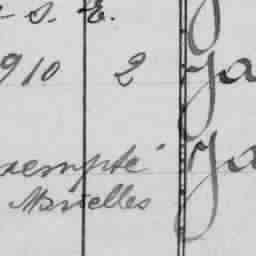 s. E.
910 2 Ja
exempté Ja